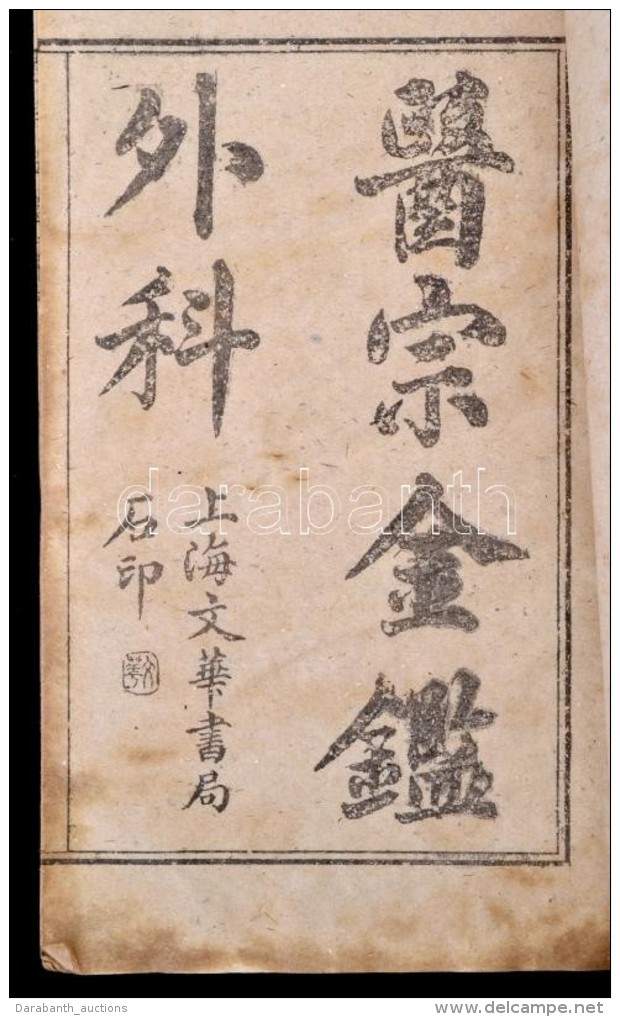 醫宗金鑑
外科
上海文華書局
石印
文華
darabanth
Darabanth_auctions
www.delcampe.net